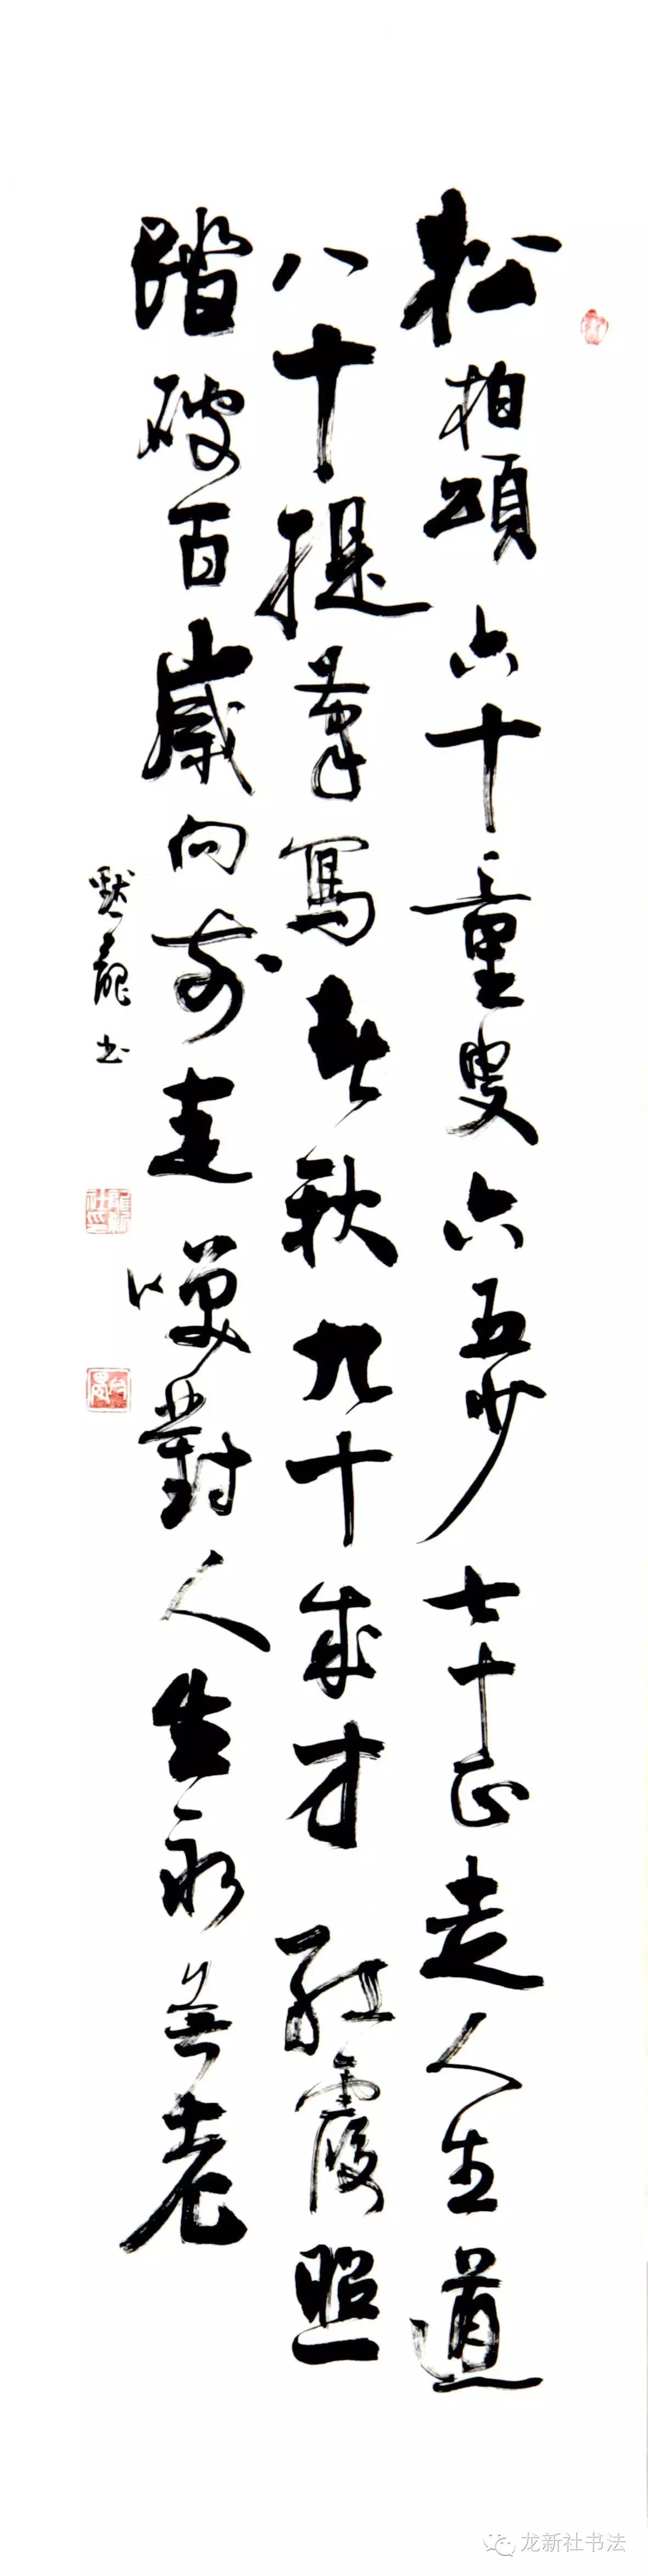 松柏頌六十童叟六五少七十正走人生道
八十提筆寫春秋九十成才紅霞照
踏破百歲向前走咲對人生永無老
默龍书
龙新社书法